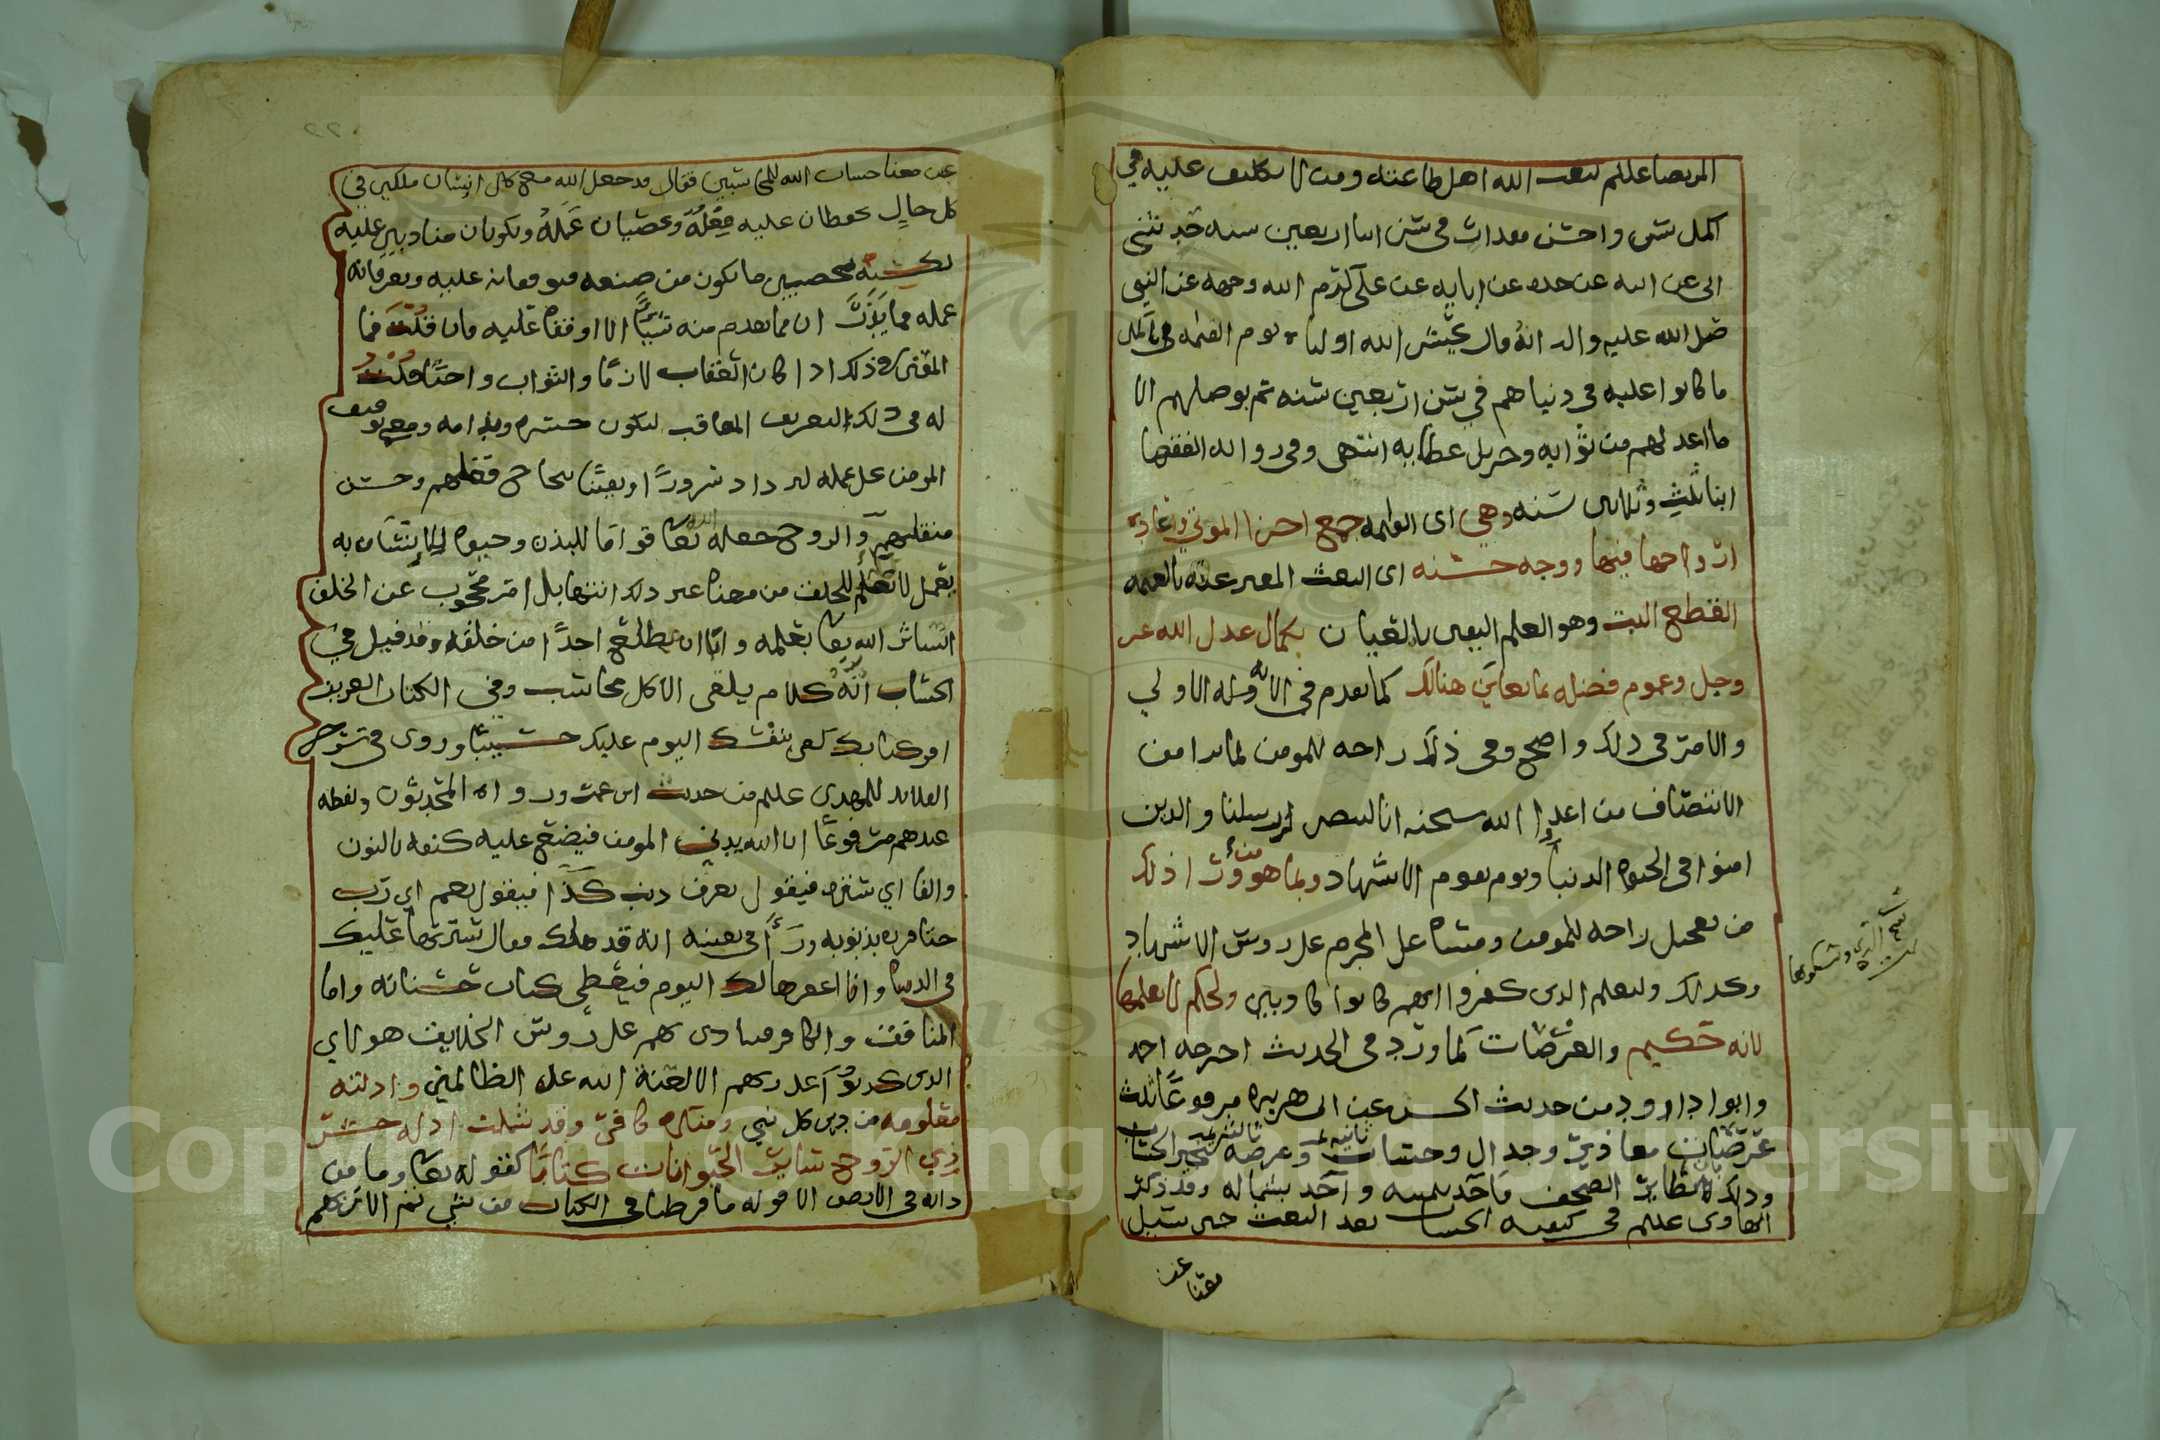 المرتضا عللم لبعث الله اهل طاعته ومن لا يكلف عليه في
اكمل سن واحسن معدات في سن ابنا اربعين سنه حدثني
ابي عن ابيه عن جده عن ابايه عن علي كرم الله وجهه عن النبي
صلى الله عليه واله انه قال يحشر الله اوليا ه يوم القيمه في اكمل
ما كانوا عليه في دنياهم في سن اربعين سنه ثم يوصلهم الا
ما اعد لهم من ثوابه وجزيل عطايه انتهى وفي رواية الفقها
ابنا ثلث وثلاثين سنه وهي اى القيمه جمع اجزا الموتى واعادة
ارواحها فيها ووجه حسنه اى البعث المعبر عنه بالقيمه
القطع البت وهو العلم اليقين بالعيان بكمال عدل الله عز
وجل وعموم فضله بما يعاين هنالك كما تقدم في الاله وله الاولي
والامر في ذلك واضح وفي ذلك راحه للمومن لما يرا من
الانتصاف من اعدا الله سبحنه انا لننصر رسلنا والذين
امنوا في الحيوه الدنيا ويوم يقوم الاشهاد وبما هو من وقت اذ ذلك
من تعجيل راحه للمومن ومساه على المجرم على روس الاشهاد
وكذلك وليعلم الذين كفروا انهم كانوا كاذبين ولحكم لا نعلمها
لانه حكيم والعرضات كما ورد في الحديث اخرجه احمد
وابوا داود من حديث الحسن عن ابى هريره مرفوعًا ثلث
عرضات معاذير وجدال وحساب وعرضه
وذلك تطاير الصحف فاخذ بيمينه وآخذ بشماله وقد ذكر
الهادى عللم في كيفيه الحساب بعد البعث حين سئل
عن معنا
عن معنا حساب الله للمحاسبين فقال قد جعل الله مع كل انسان ملكين في
كل حالٍ يحفظان عليه فِعْلَهُ ويحصيان عَمَلَهُ ويكونان مناديين عليه
محصيين ما يكون من صنعه فيوقفانه عليه ويعرفانه
عمله فما يَذَرَانِ مما تقدم منه شيئًا الا اوقفاه عليه فان قلت فما
المقتضي لذلك اذا كان العقاب لازمًا والثواب واجبًا قلت
له في ذلك التعريف المعاقب لتكون حسره وندامه ومع توقيف
المومن على عمله ليزداد سرورًا ويقينًا بنجاح فعلهم وحسن
منقلبهم والروح جعله الله تعا قوامًا للبدن وحيوه للانسان به
يعمل لا نعلم للخلف من معناه غير ذلك انتها بل امر محجوب عن الخلف
استاثر الله تعا بعلمه وابا ان يطلع احدًا من خلقه وقد قيل في
الحساب انهُ كلام يلقى الا كل محاسب وفي الكتاب العزيز
اقر كتابك كفى بنفسك اليوم عليك حسيبًا وروى في شرح
القلائد للمهدى عللم من حديث ابن عمر ورواه المحدثون ولفظه
عندهم مرفوعًا ان الله يدني المومن فيضع عليه كنفه بالنون
والفا اي ستره فيقول تعرف ذنب كذا فيقول نعم اي رب
حتا قرره بذنوبه ورأ في نفسه انه قد هلك فقال سترتها عليك
في الدنيا وانا اغفرها لك اليوم فيعطى كتاب حسناته واما
المنافقين والكافر فينادى بهم على روس الخلايق هولاي
الذين كذبوا على ربهم الا لعنة الله على الظالمين وادلته
معلومه من دين كل نبي ومنكره كافر وقد شملت ادله حشر
ذي الروح ساير الحيوانات كتابًا كقوله تعا وما من
دابه في الارض الا قوله ما فرطنا في الكتاب من شي ثم الا ربهم